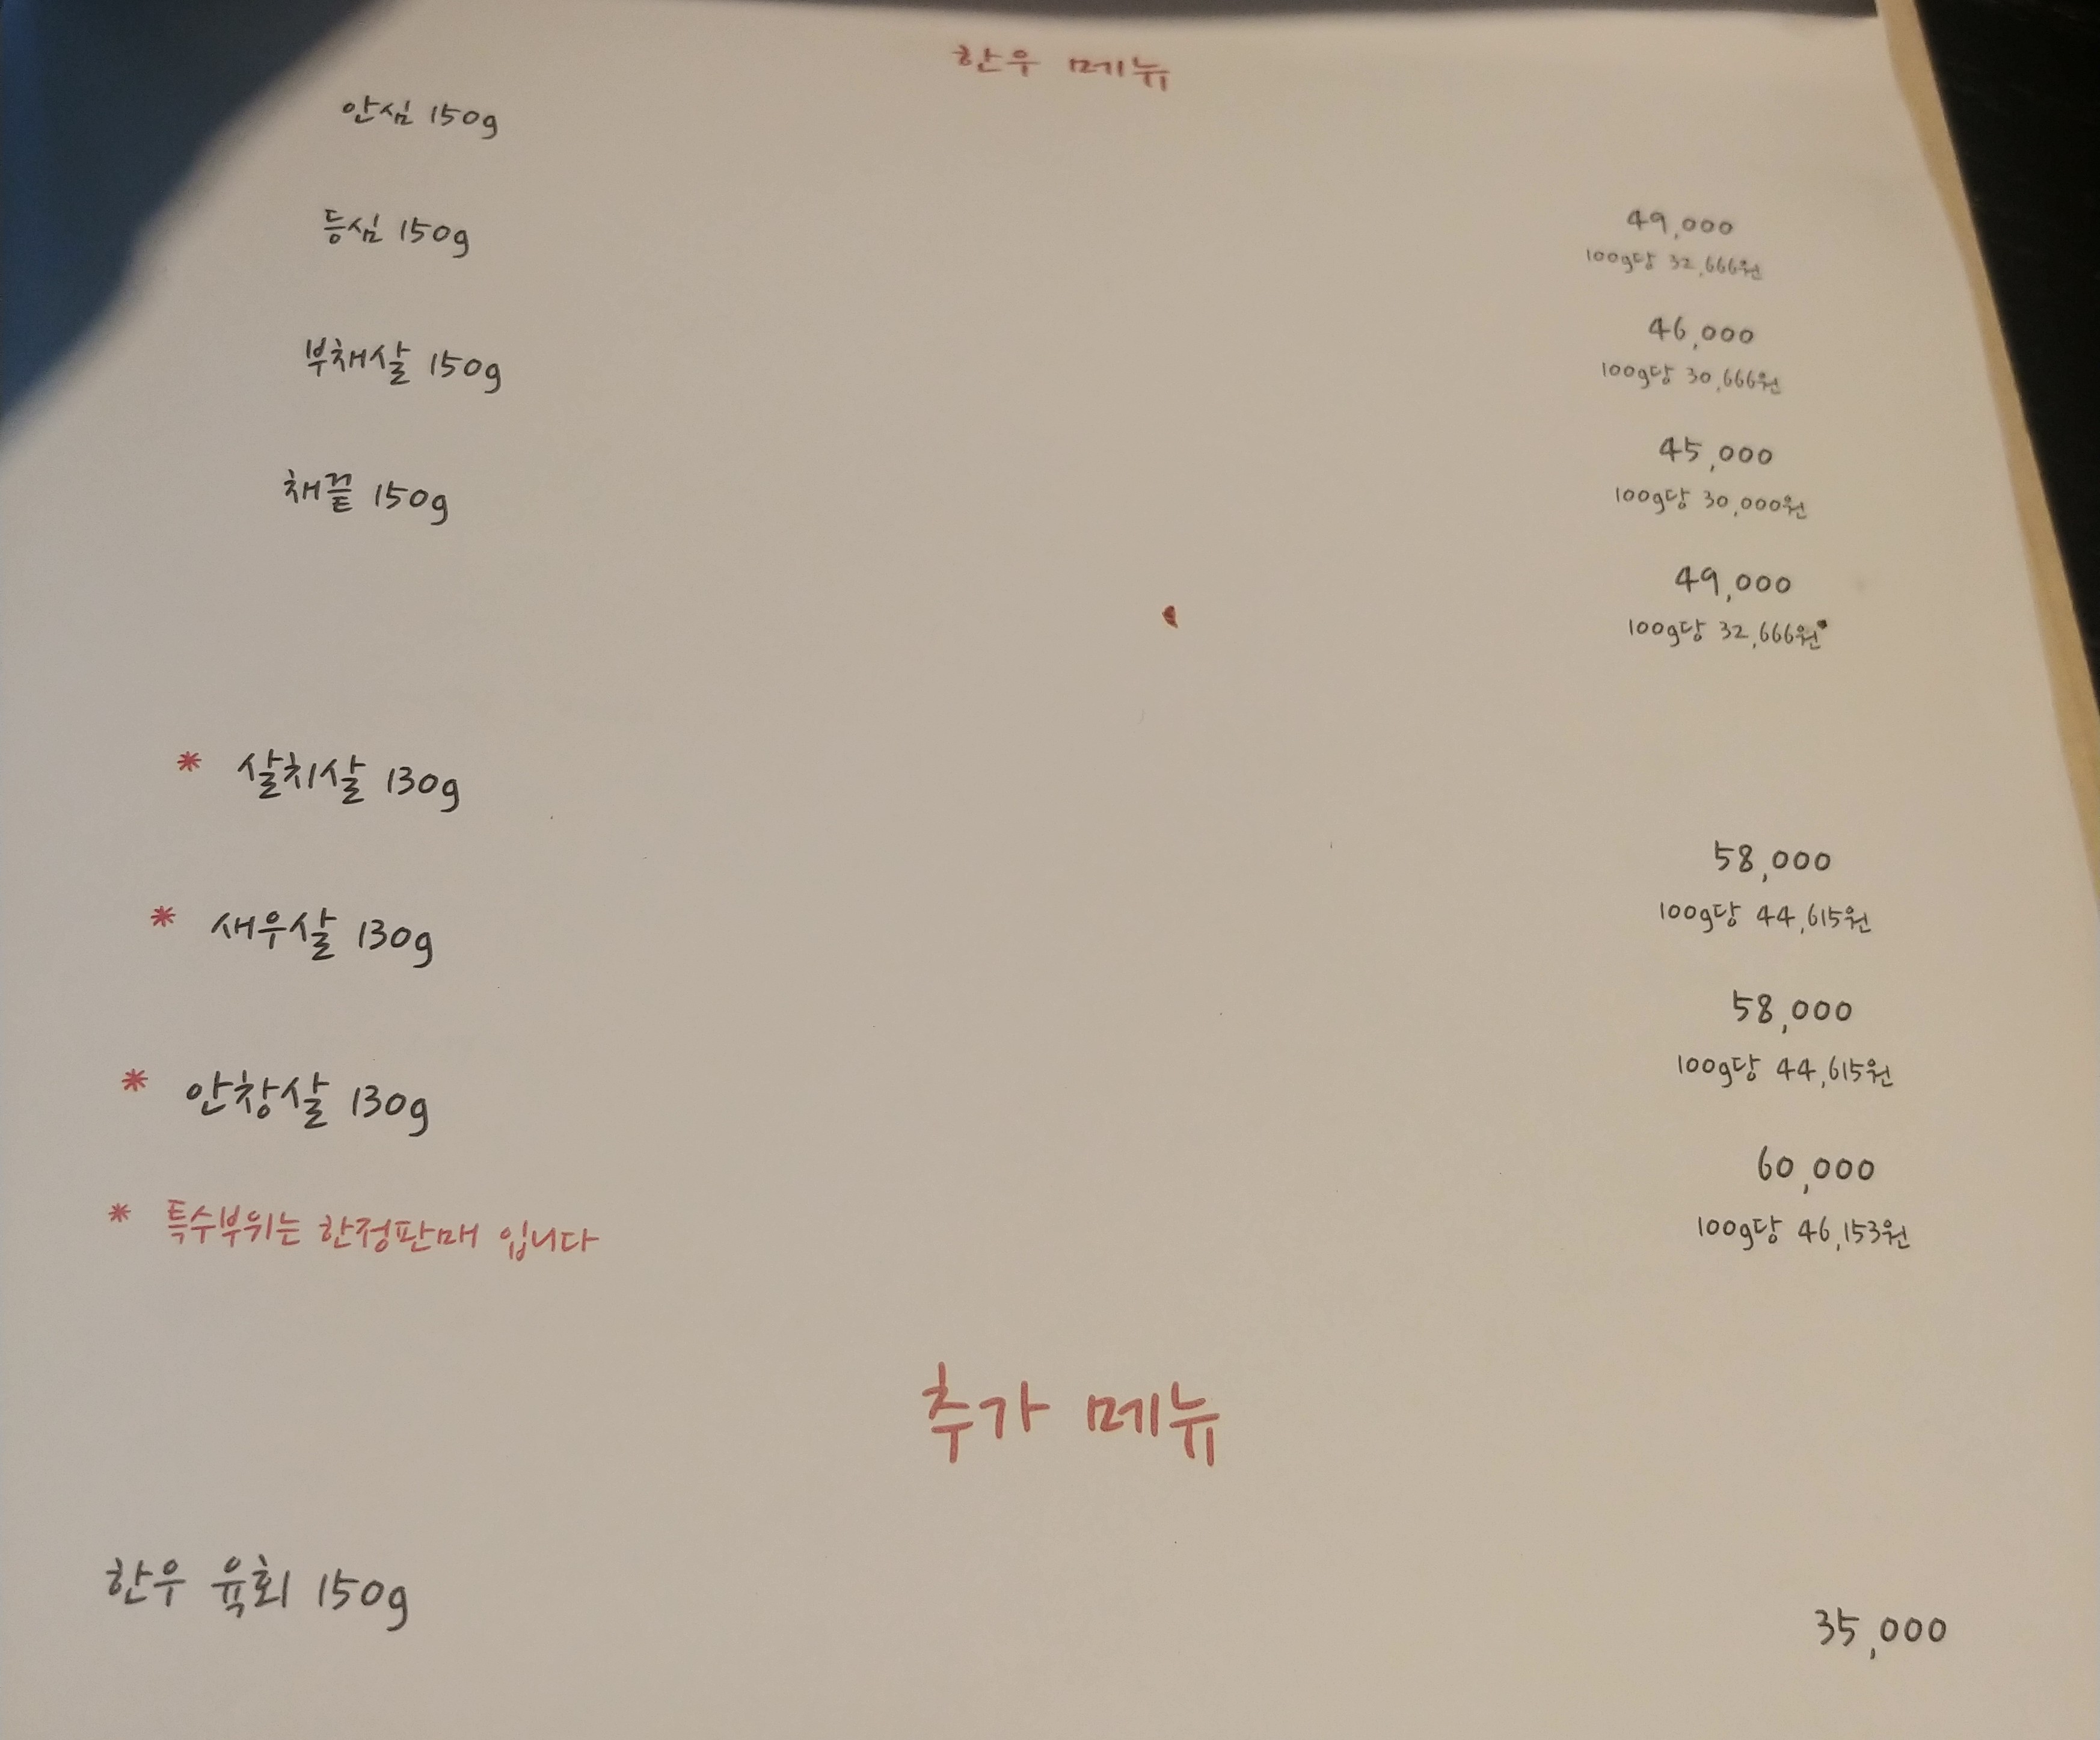 한우 메뉴
안심 150g
49,000
100g당 32,666원
등심 150g
46,000
100g당 30,666원
부채살 150g
45,000
100g당 30,000원
채끝 150g
49,000
100g당 32,666원
* 살치살 130g
58,000
100g당 44,615원
* 새우살 130g
58,000
100g당 44,615원
* 안창살 130g
60,000
100g당 46,153원
* 특수부위는 한정판매 입니다
추가 메뉴
한우 육회 150g
35,000